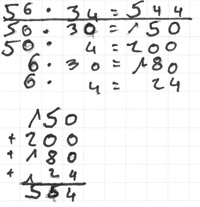 56 · 34 = 544
50 · 30 = 150
50 · 4 = 200
6 · 30 = 180
6 · 4 = 24
150
+ 200
+ 180
+ 24
1
554